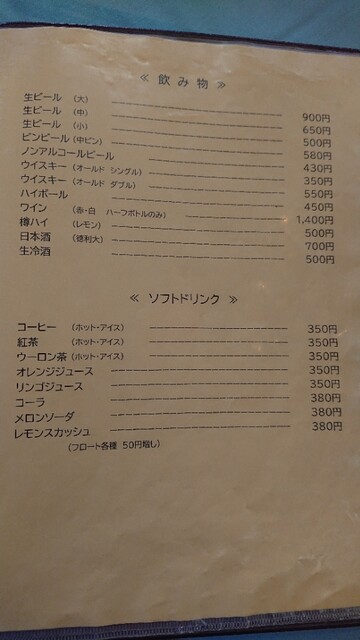 ≪ 飲み物 ≫
生ビール (大) 900円
生ビール (中) 650円
生ビール (小) 500円
ビンビール(中ビン) 580円
ノンアルコールビール 430円
ウイスキー (オールド シングル) 350円
ウイスキー (オールド ダブル) 550円
ハイボール 450円
ワイン (赤・白 ハーフボトルのみ) 1,400円
樽ハイ (レモン) 500円
日本酒 (徳利大) 700円
生冷酒 500円
≪ ソフトドリンク ≫
コーヒー (ホット・アイス) 350円
紅茶 (ホット・アイス) 350円
ウーロン茶(ホット・アイス) 350円
オレンジジュース 350円
リンゴジュース 350円
コーラ 380円
メロンソーダ 380円
レモンスカッシュ 380円
(フロート各種 50円増し)